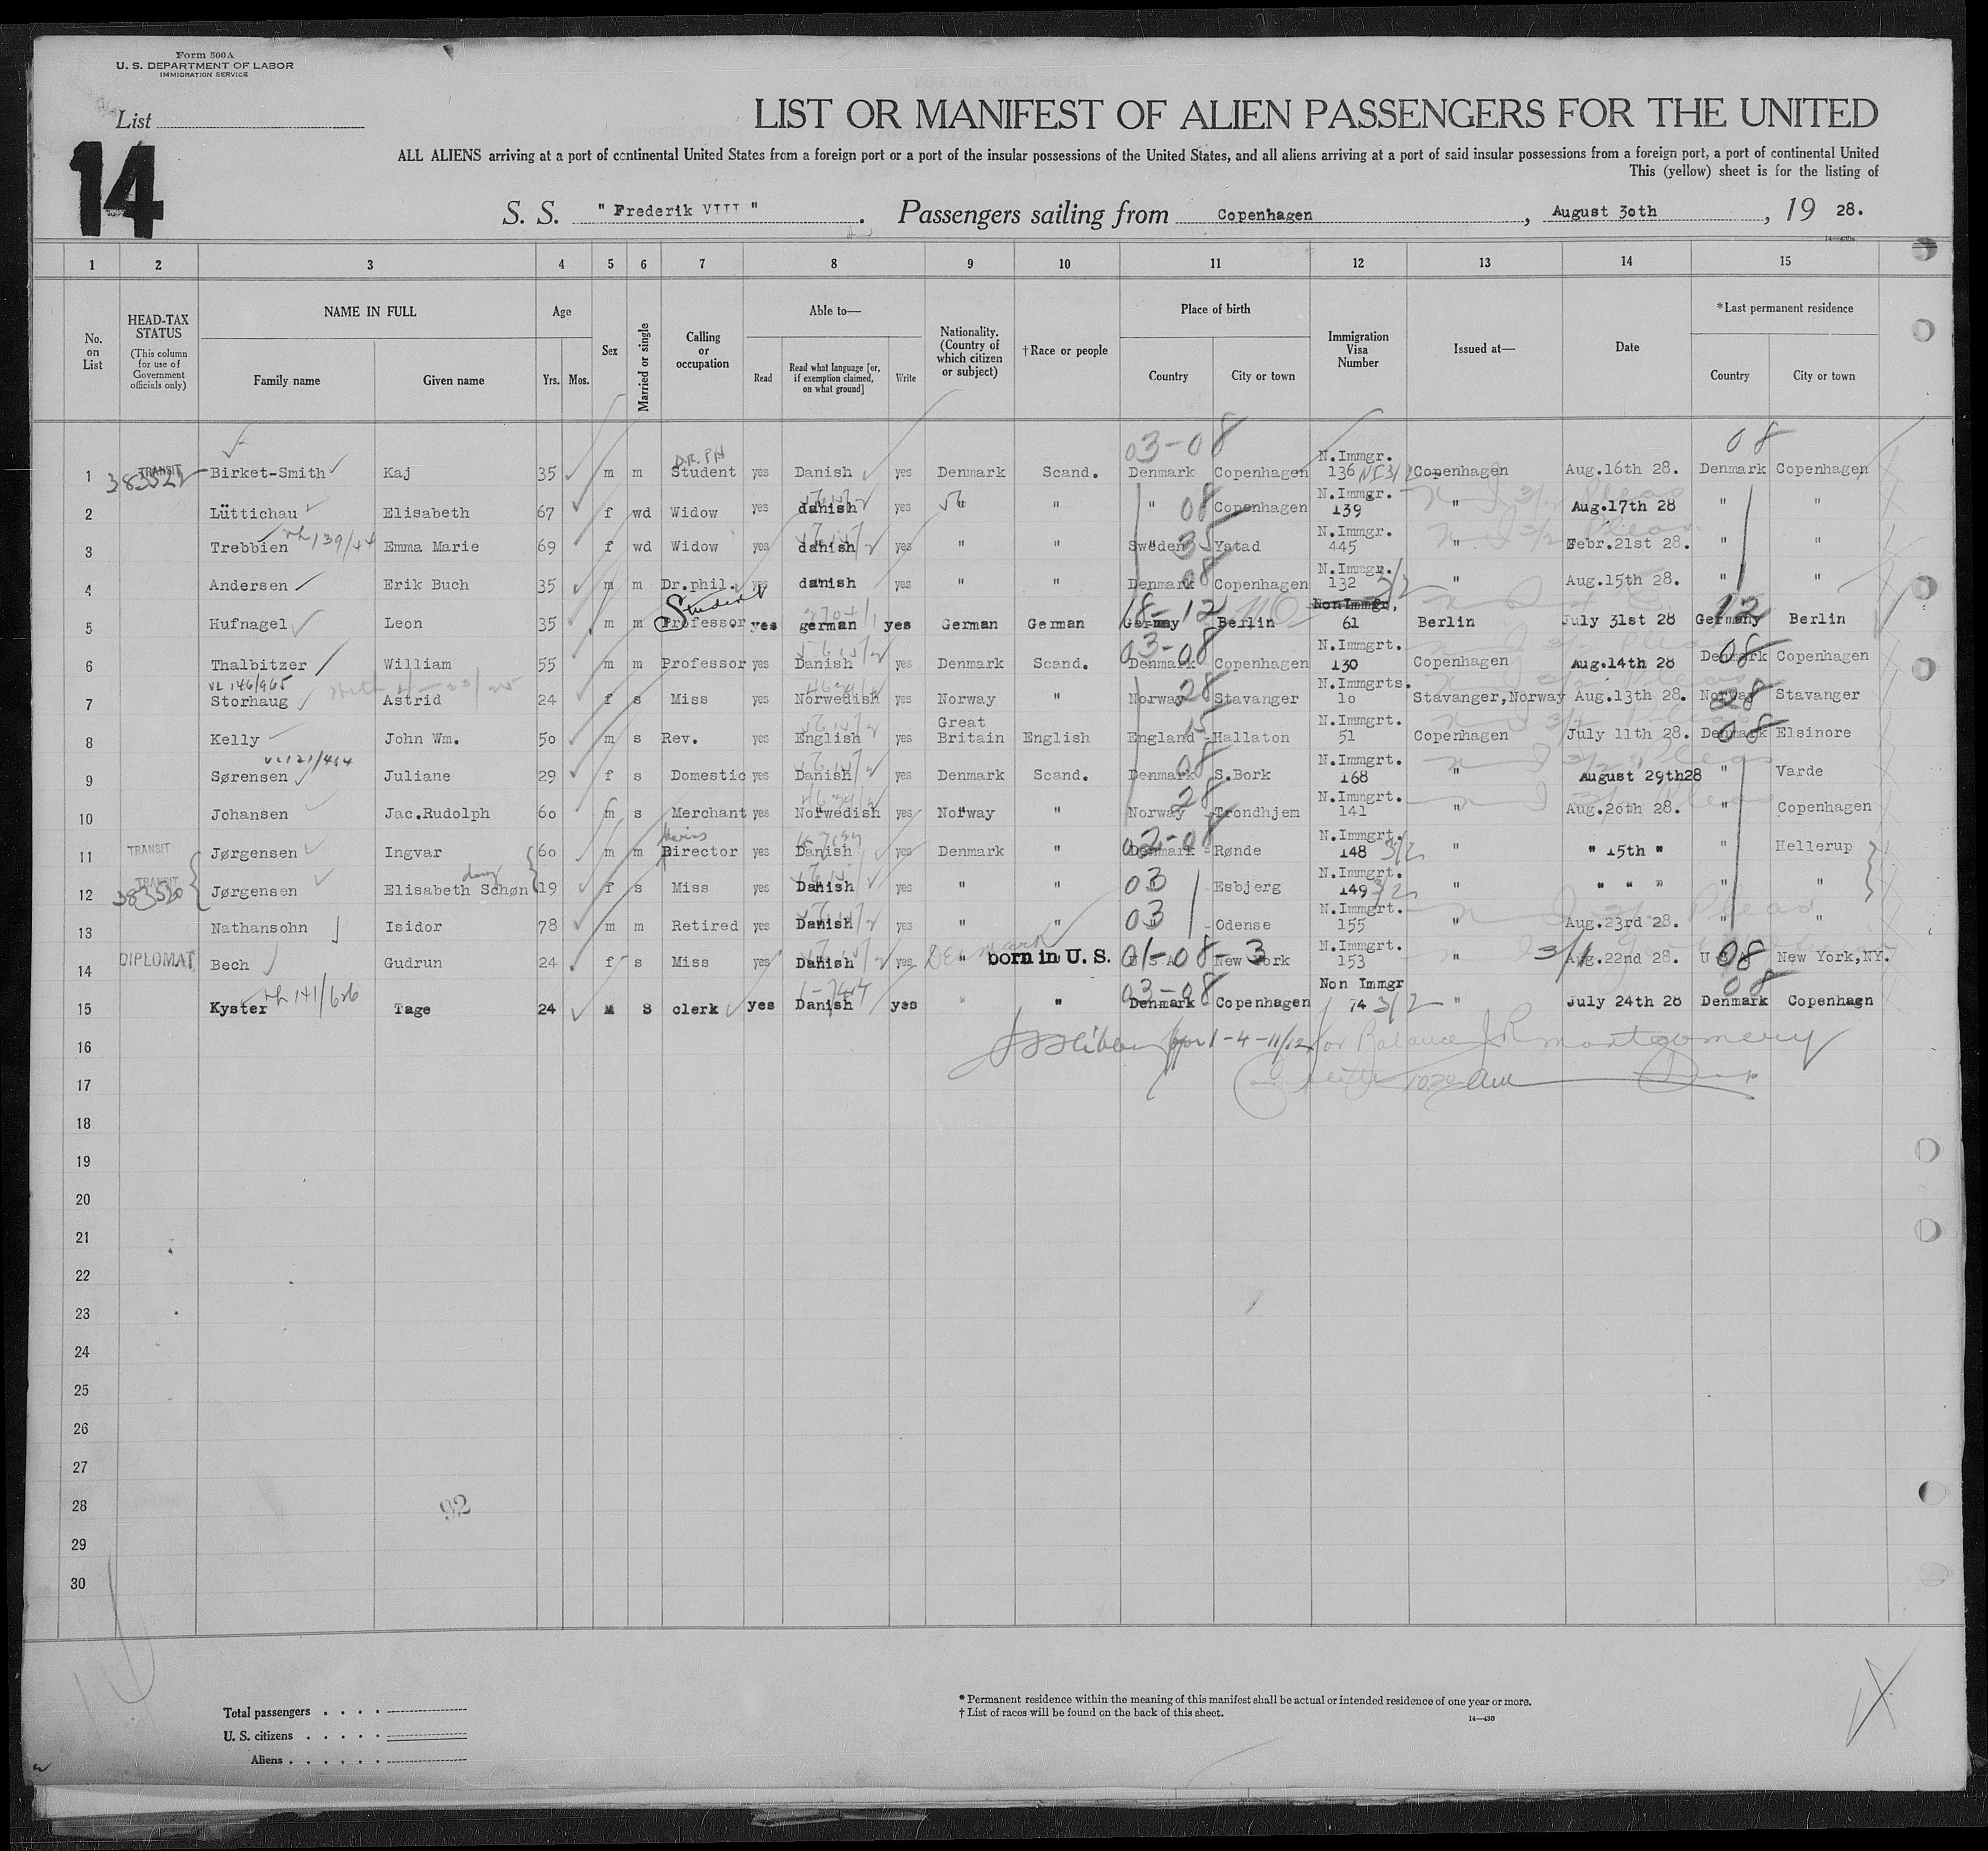 Form 500A
U. S. DEPARTMENT OF LABOR
IMMIGRATION SERVICE
List
14
LIST OR MANIFEST OF ALIEN PASSENGERS FOR THE UNITED
ALL ALIENS arriving at a port of continental United States from a foreign port or a port of the insular possessions of the United States, and all aliens arriving at a port of said insular possessions from a foreign port, a port of continental United
This (yellow) sheet is for the listing of
S. S. " Frederik VIII " . Passengers sailing from Copenhagen , August 30th , 19 28.
1 2 3 4 5 6 7 8 9 10 11 12 13 14 15
No. on List
HEAD-TAX STATUS
(This column for use of Government officials only)
NAME IN FULL
Family name Given name
Age
Yrs. Mos.
Sex
Married or single
Calling or occupation
Able to—
Read
Read what language [or, if exemption claimed, on what ground]
Write
Nationality. (Country of which citizen or subject)
†Race or people
Place of birth
Country City or town
Immigration Visa Number
Issued at—
Date
*Last permanent residence
Country City or town
03-08 08
1 TRANSIT 383522 Birket-Smith Kaj 35 m m D.R. PH Student yes Danish yes Denmark Scand. Denmark Copenhagen N.Immgr. 136 NI 3/2 Copenhagen Aug.16th 28. Denmark Copenhagen
2 Lüttichau Elisabeth 67 f wd Widow yes danish yes " " " 08 Copenhagen N.Immgr. 139 " Aug.17th 28 " "
3 Trebbien 139/44 Emma Marie 69 f wd Widow yes danish yes " " Sweden 35 Ystad N.Immgr. 445 " Febr.21st 28. " "
4 Andersen Erik Buch 35 m m Dr.phil. yes danish yes " " Denmark 08 Copenhagen N.Immgr. 132 3/2 " Aug.15th 28. " "
5 Hufnagel Leon 35 m m Student Professor yes german yes German German Germay 18-12 Berlin NonImmgr, 61 Berlin July 31st 28 Germany 12 Berlin
6 Thalbitzer William 55 m m Professor yes Danish yes Denmark Scand. Denmark 03-08 Copenhagen N.Immgrt. 130 Copenhagen Aug.14th 28 Denmark 08 Copenhagen
7 146/965 Storhaug Astrid 24 f s Miss yes Norwedish yes Norway " Norway 28 Stavanger N.Immgrts. 10 Stavanger,Norway Aug.13th 28. Norway 28 Stavanger
8 Kelly John Wm. 50 m s Rev. yes English yes Great Britain English England 15 Hallaton N.Immgrt. 51 Copenhagen July 11th 28. Denmark 08 Elsinore
9 121/464 Sørensen Juliane 29 f s Domestic yes Danish yes Denmark Scand. Denmark 08 S.Bork N.Immgrt. 168 " August 29th28 " Varde
10 Johansen Jac.Rudolph 60 m s Merchant yes Norwedish yes Norway " Norway 28 Trondhjem N.Immgrt. 141 " Aug.20th 28. " Copenhagen
11 TRANSIT Jørgensen Ingvar 60 m m Director yes Danish yes Denmark " Denmark 02-08 Rønde N.Immgrt. 148 3/2 " " 15th " " Hellerup
12 TRANSIT 383520 Jørgensen Elisabeth Schøn 19 f s Miss yes Danish yes " " 03 Esbjerg N.Immgrt. 149 3/2 " " " " " "
13 Nathansohn Isidor 78 m m Retired yes Danish yes " " 03 Odense N.Immgrt. 155 " Aug.23rd 28. " "
14 DIPLOMAT Bech Gudrun 24 f s Miss yes Danish yes Denmark " born in U. S. U S A 01-08-3 New York N.Immgrt. 153 " 3/1 Aug.22nd 28. U S 08 New York,NY.
15 Kyster 141/626 Tage 24 M S clerk yes Danish yes " " Denmark 03-08 Copenhagen Non Immgr 74 3/2 " July 24th 28 Denmark 08 Copenhagn
16 for 1-4-11/12 for Balance J R Montgomery
17
18
19
20
21
22
23
24
25
26
27
28 92
29
30
Total passengers . . . .
U. S. citizens . . . . .
Aliens . . . . . .
* Permanent residence within the meaning of this manifest shall be actual or intended residence of one year or more.
† List of races will be found on the back of this sheet.
14—430